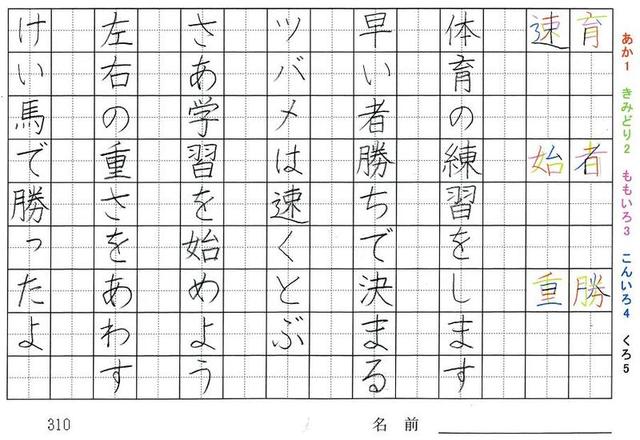 あか1 きみどり2 ももいろ3 こんいろ4 くろ5
育 者 勝
速 始 重
体育の練習をします
早い者勝ちで決まる
ツバメは速くとぶ
さあ学習を始めよう
左右の重さをあわす
けい馬で勝ったよ
310
名前